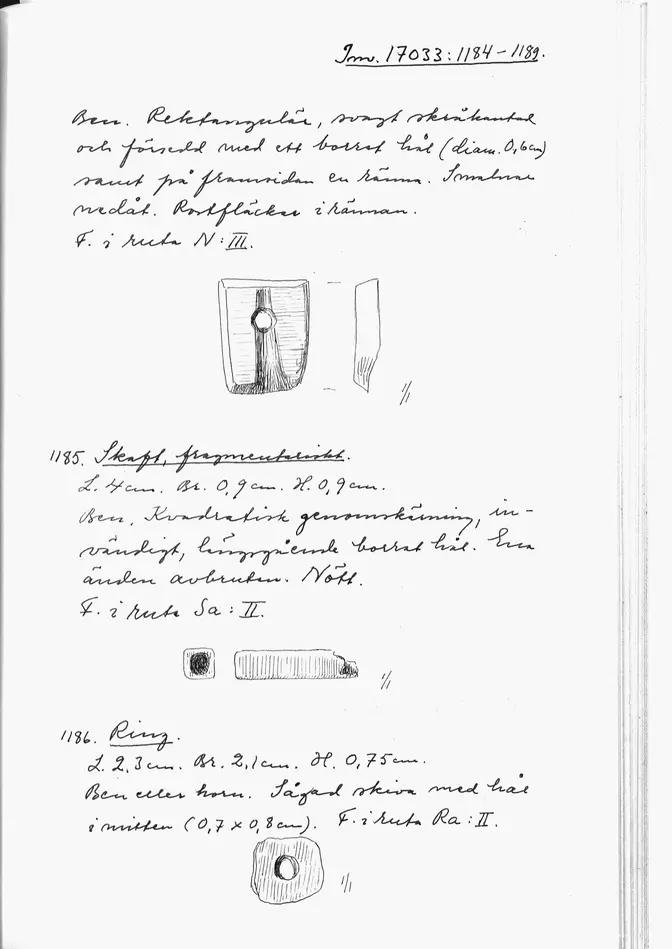 Inv. 17033:1184–1189.
Ben. Rektangulär, svagt skråkantad
och försedd med ett borrat hål (diam. 0,6cm)
samt på framsidan en ränna. Smalnar
nedåt. Rostfläckar i rännan.
F. i ruta N:III.
1/1
1185. Skaft, fragmentariskt.
L. 4cm. Br. 0,9cm. H. 0,9cm.
Ben. Kvadratisk genomskärning, in-
vändigt, längsgående borrat hål. Ena
änden avbruten. Nött.
F. i ruta Sa:II.
1/1
1186. Ring.
L. 2,3cm. Br. 2,1cm. H. 0,75cm.
Ben eller horn. Sågad skiva med hål
i mitten (0,7 x 0,8cm). F. i ruta Ra:II.
1/1